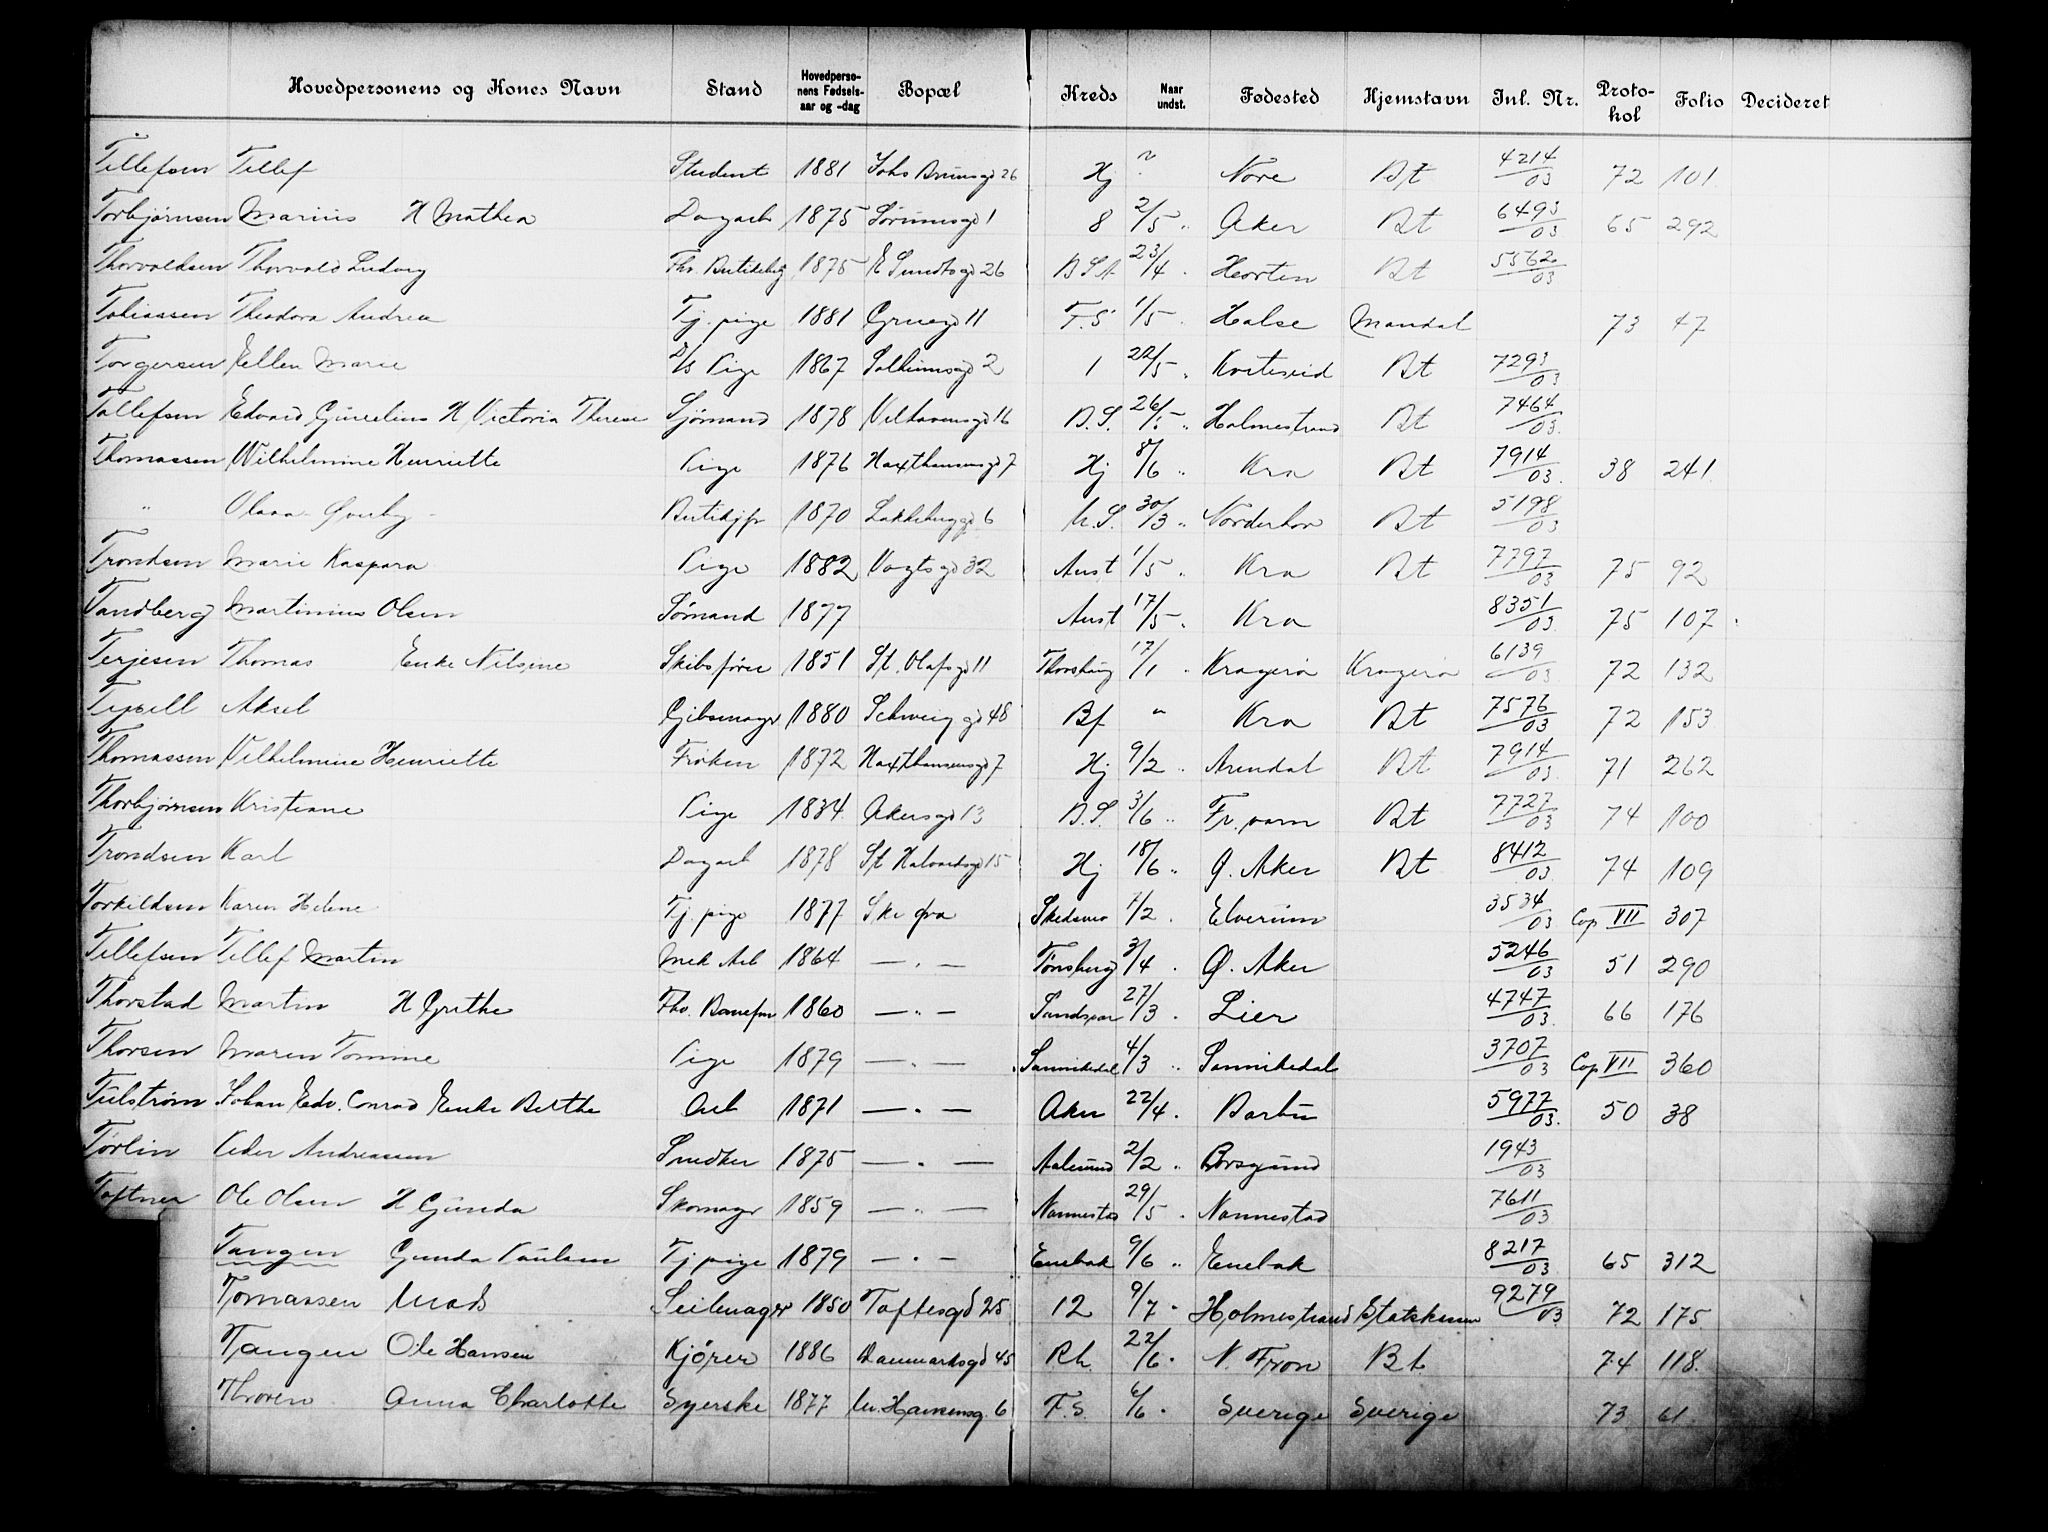 Hovedpersonens og Kones Navn Stand Hovedperso-nens Fødsels-aar og -dag Bopæl Kreds Naar undst. Fødested Hjemstavn Inl. Nr. Proto-kol Folio Decideret
Tellefsen Tellef Student 1881 26 Hj Nore Bt 4214/03 72 101
Torbjørnsen Marius H Mathea Dagarb 1875 Sørumsgd 1 8 2/5 " Aker Bt 6493/03 65 292
Thorvaldsen Thorvald Ludvig Fhv. 1875 E Sundtsgd 26 B.S.A 23/4 . Horten Bt 5562/03
Tobiassen Theodora Andrea Tj. pige 1881 Gruegd 11 F.S 1/5 . Halse Mandal 73 47
Torgersen Ellen Marie Pige 1867 2 1 22/5 . Kviteseid Bt 7293/03
Tollefsen Edvard H Victoria Therese Sjømand 1878 Velhavensgd 16 B.S. 26/5 " Holmestrand Bt 7464/03
Thomassen Wilhelmine Henriette Pige 1876 Haxthausensgd 7 Hj 8/6 " Kra Bt 7914/03 38 241
" Olava 1870 Lakkeguggd 6 30/3 " Norderhov Bt 5198/03
Trondsen Marie Kaspara Pige 1882 Vogtsgd 32 Aust 1/5 . Kra Bt 7797/03 75 92
Tandberg Martinius Olsen Sømand 1877 Aust 17/5 . Kra 8351/03 75 107
Terjesen Thomas Enke Nilsine Skibsfører 1851 St. Olafsgd 11 17/1 " Kragerø Kragerø 6139/03 72 132
Aksel Gibsmager 1880 Schweigdgd 48 Bf " Kra Bt 7576/03 72 153
Thomassen Vilhelmine Henriette Frøken 1872 Haxthausensgd 7 Hj 9/2 " Arendal Bt 7914/03 71 262
Thorbjørnsen Kristiane Pige 1834 Akersgd 13 B.S. 3/6 " Bt 7727/03 74 100
Trondsen Karl Dagarb 1878 St Halvardsgd 15 Hj 18/6 " Ø. Aker Bt 8412/03 74 109
Torkildsen Karen Helene Tj. pige 1877 Skedsmo 1/2 . Elverum 3534/03 Cop VII 307
Tellefsen Tellef Martin Mek Arb 1864 — . — Tønsberg 3/4 . Ø. Aker 5246/03 51 290
Thorstad Martin H Grethe Fhv. 1860 — " — 27/3 . Lier 4747/03 66 176
Thorsen Maren Tomine Pige 1879 — . — Sannikedal 4/3 " Sannikedal 3707/03 Cop VII 360
Tulstrøm Johan Edv. Conrad Enke Berthe Arb 1871 — . — Aker 22/4 . Barbu 5977/03 50 38
Tørlin Peder Andreassen Snedker 1875 — . — Aalesund 2/2 " Borgund 1943/03
Toftner Ole Olsen H Gunda Skomager 1859 — " — Nannestad 29/5 . Nannestad 7611/03
Tangen Gunda Paulsen Tj pige 1879 — . — Enebak 9/6 " Enebak 8217/03 65 312
Tomassen Mads Seilmager 1850 Toftesgd 25 12 9/7 . Holmestrand Statskassen 9279/03 72 175
Tangen Ole Hansen Kjører 1886 Danmarksgd 45 Rh. 22/6 . N. Fron Bt 74 118.
Thoren Anna Charlotte Syerske 1877 6 F.S. 6/6 . Sverige Sverige 73 61